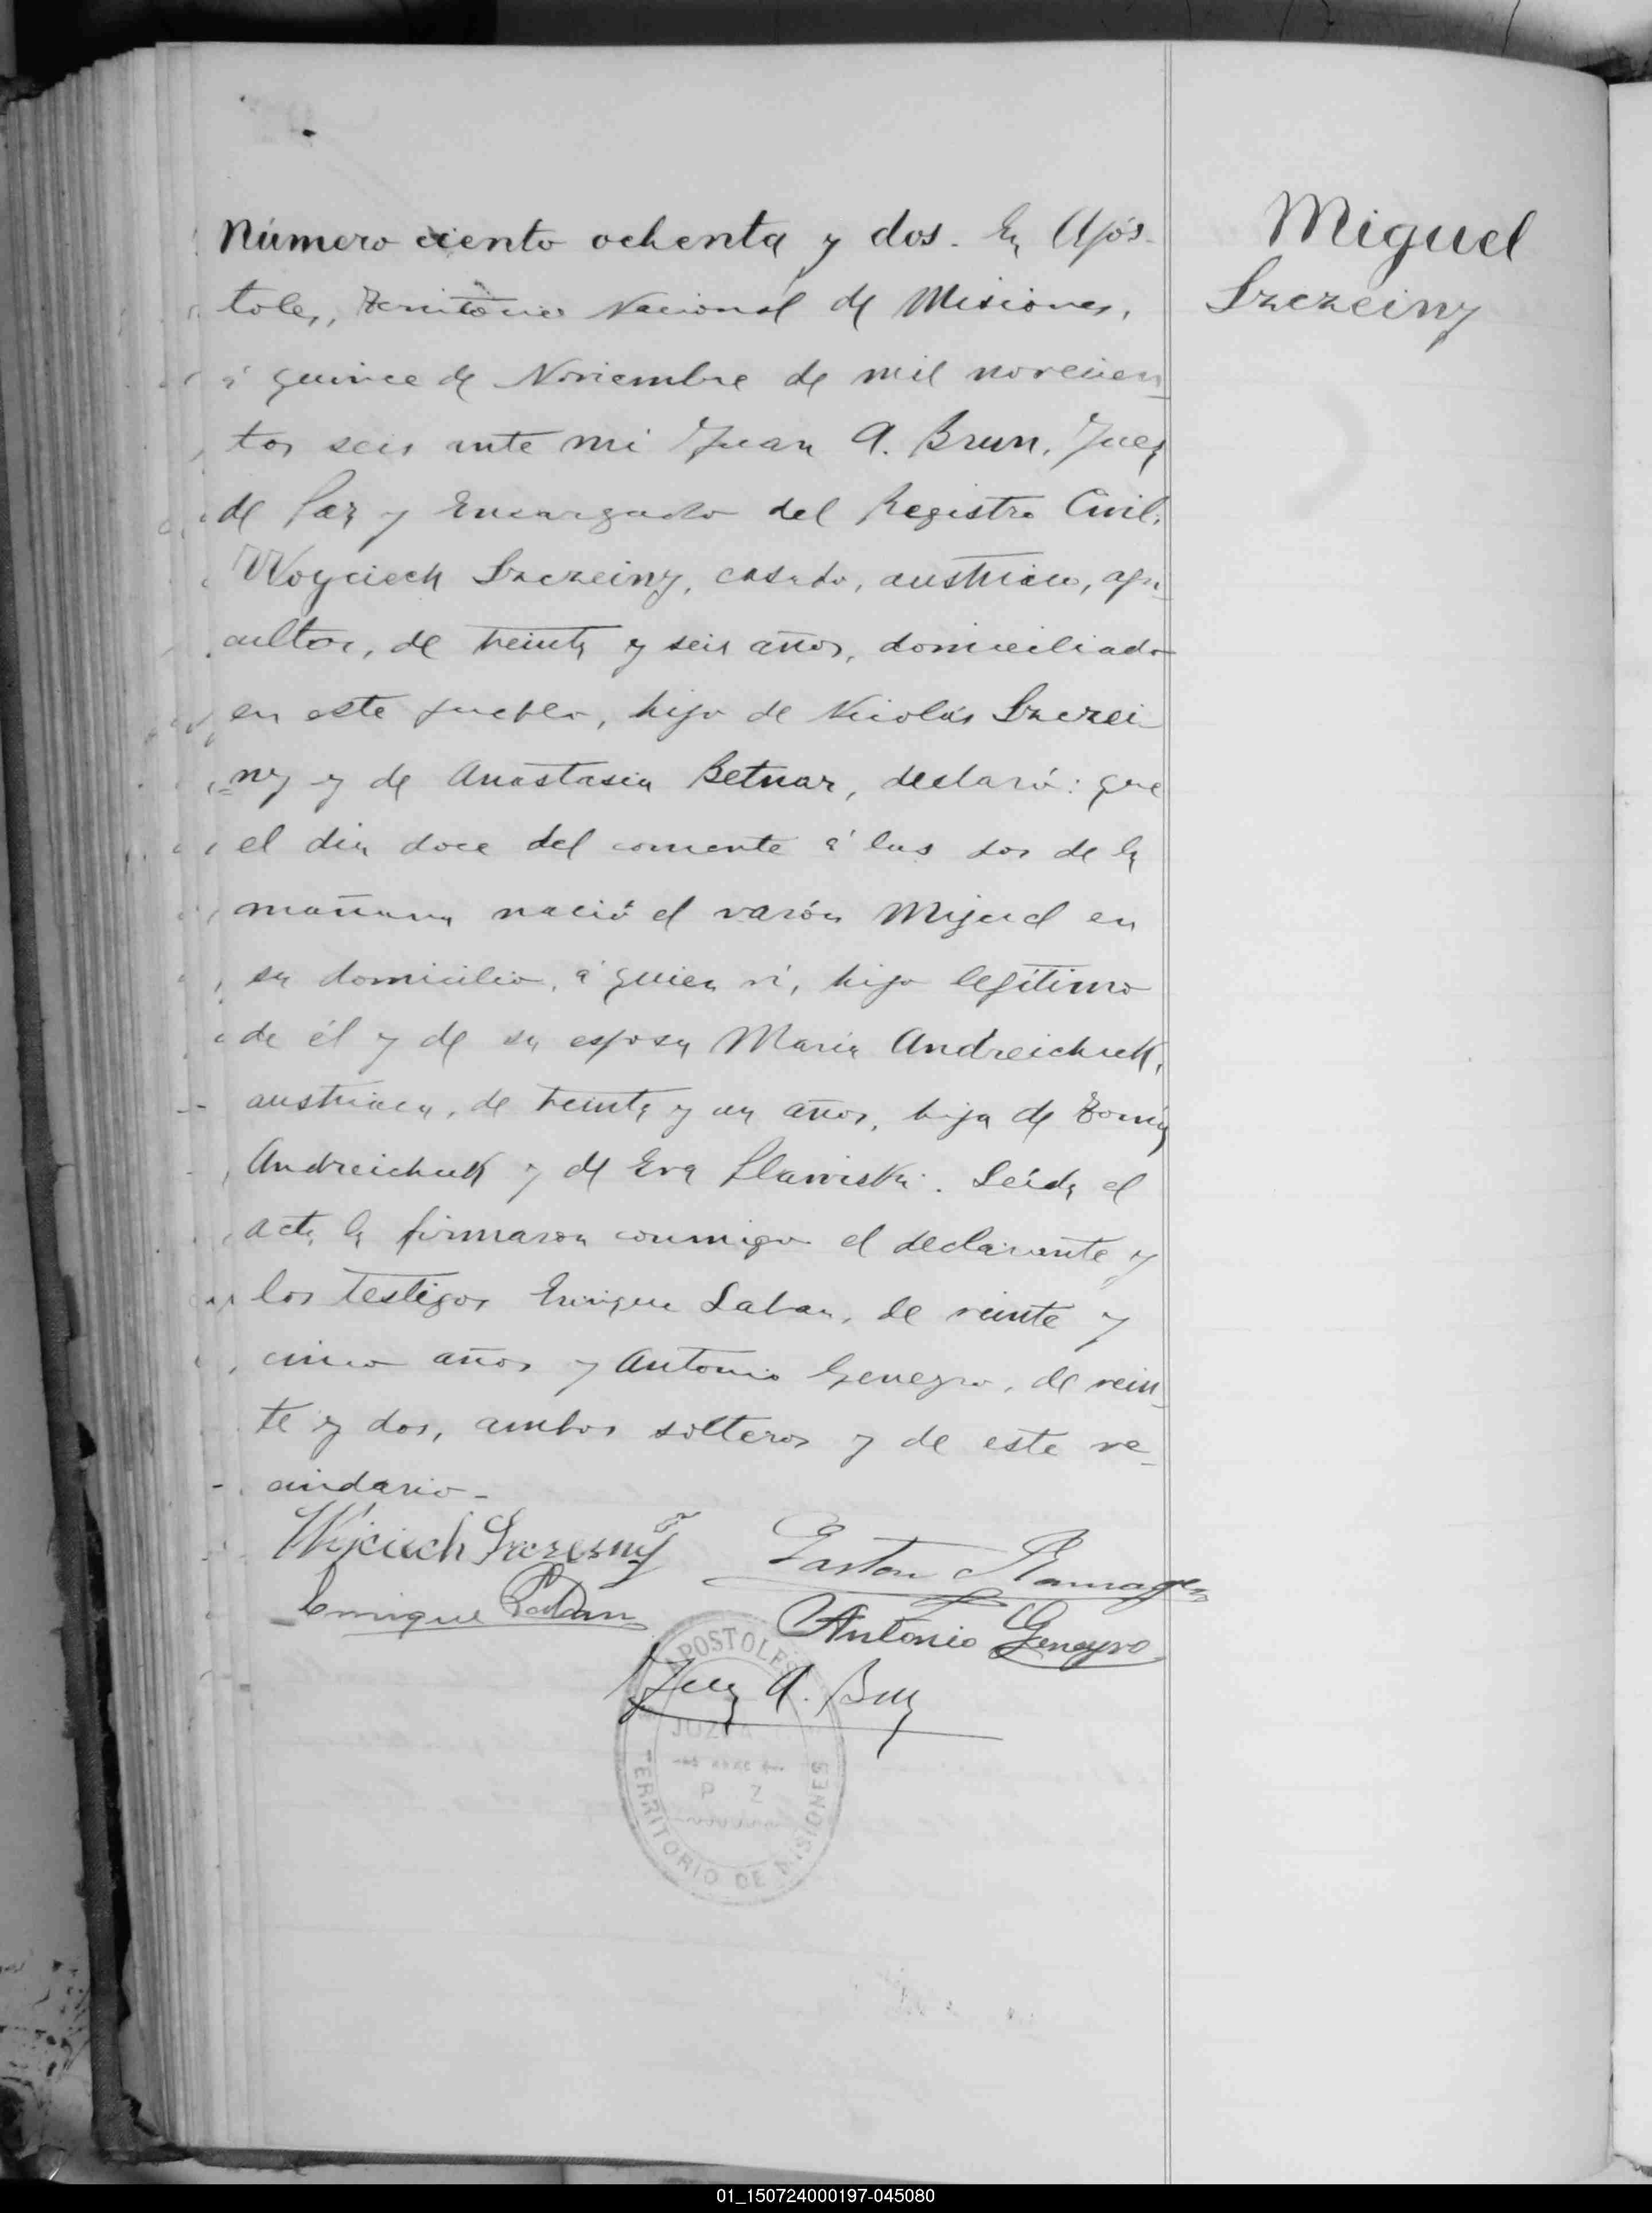 Número ciento ochenta y dos. En Após-
toles, Territorio Nacional de Misiones,
á quince de Noviembre de mil novecien-
tos seis ante mi Juan A. Brun, Juez
de Paz y Encargado del Registro Civil,
Woyciech Szczeiny, casado, austriaco, agri-
cultor, de treinta y seis años, domiciliado
en este pueblo, hijo de Nicolás Szczei-
ny y de Anastasia Betnar, declaró: que
el dia doce del corriente á las dos de la
mañana nació el varón Miguel en
su domicilio, á quien ví, hijo legítimo
de él y de su esposa Maria Andreichuk,
austriaca, de treinta y un años, hija de Tomás
Andreichuk y de Eva Slawiski. Leída el
acta la firmaron conmigo el declarante y
los testigos Enrique Laban, de veinte y
cinco años y Antonio Geneyro, de vein-
te y dos, ambos solteros y de este ve-
cindario-
Miguel
Szczeiny
Wójciech Szczesny
Gaston
Enrique
Antonio Geneyro
Juan A. Brun
APOSTOLES
JUZ
P Z
TERRITORIO DE MISIONES
01_150724000197-045080